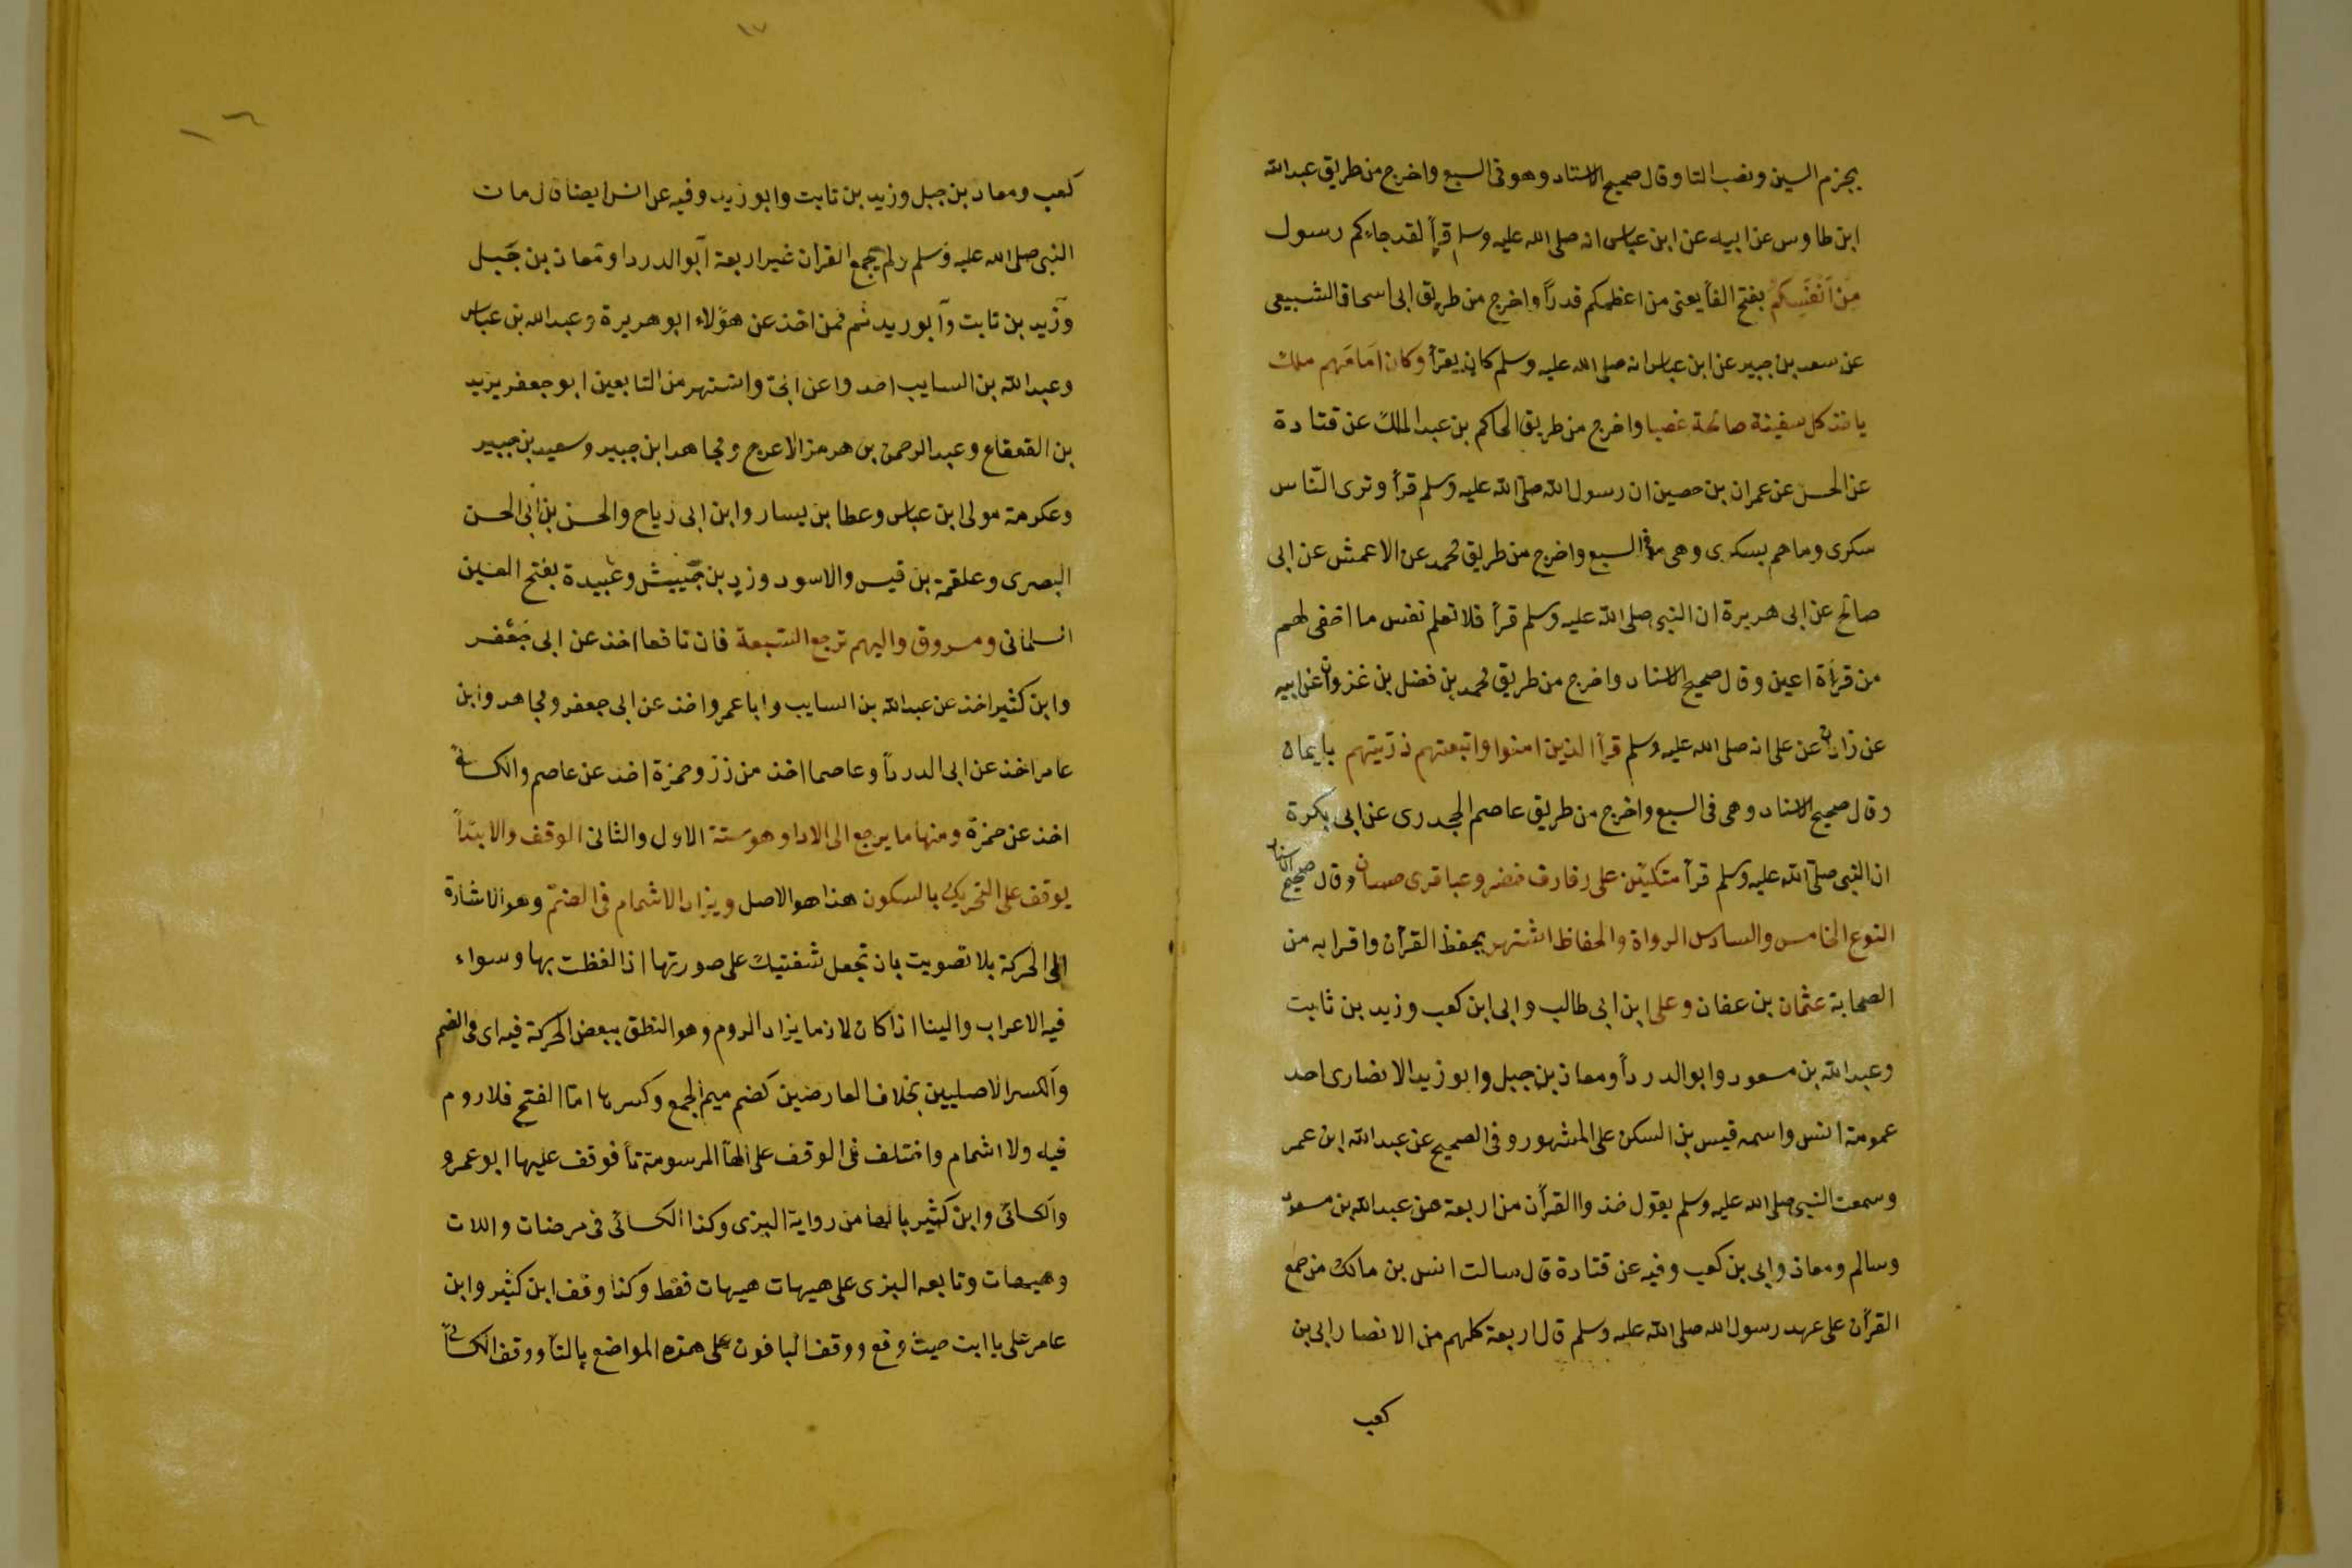 بجزم السين ونصب التا وقال صحيح الاسناد وهو فى السبع واخرج من طريق عبدالله
ابن طاوس عن ابيه عن ابن عباس انه صلى الله عليه وسلم قرأ لقد جاءكم رسول
من أنفَسكم بفتح الفأ يعنى من اعظمكم قدراً واخرج من طريق ابى اسحاق الشبيعى
عن سعد بن جبير عن ابن عباس انه صلى الله عليه وسلم كان يقرأ وكان امامهم ملك
ياخذ كل سفينة صالحة غصبا واخرج من طريق الحاكم بن عبد الملك عن قتادة
عن الحسن عن عمران بن حصين ان رسول الله صلى الله عليه وسلم قرأ وترى النّاس
سكرى وما هم بسكرى وهى فى السبع واخرج من طريق محمد عن الاعمش عن ابى
صالح عن ابى هريرة ان النبى صلى الله عليه وسلم قرأ فلا تعلم نفس ما اخفى لهم
من قرأة اعين وقال صحيح الاسناد واخرج من طريق محمد بن فضل بن غزوان عن ابيه
عن زاذان عن على انه صلى الله عليه وسلم قرأ الذين امنوا واتبعتهم ذرّيتهم بايمان
وقال صحيح الاسناد وهى فى السبع واخرج من طريق عاصم الجحدرى عن ابى بكرة
ان النبى صلى الله عليه وسلم قرأ متكئين على رفارف خضر وعباقرى حسان وقال صحيح الاسناد
النوع الخامس والسادس الرواة والحفاظ اشتهر بحفظ القرآن واقرابه من
الصحابة عثمان بن عفان وعلى ابن ابى طالب وابى ابن كعب وزيد بن ثابت
وعبدالله بن مسعود وابو الدردأ ومعاذ بن جبل وابو زيد الانصارى احد
عمومة انس واسمه قيس بن السكن على المشهور وفى الصحيح عن عبدالله ابن عمر
وسمعت النبى صلى الله عليه وسلم يقول خذوا القرأن من اربعة من عبدالله بن مسعود
وسالم ومعاذ وابى بن كعب وفيه عن قتادة قال سالت انس بن مالك من جمع
القرأن على عهد رسول الله صلى الله عليه وسلم قال اربعة كلهم من الانصار ابى بن
كعب
١٧
١٦
كعب ومعاد بن جبل وزيد بن ثابت وابو زيد وفيه عن انس ايضا قال مات
النبى صلى الله عليه وسلم ولم يجمع القران غير اربعة ابو الدردا ومعاذ بن جبل
وزيد بن ثابت وابو زيد ثم فمن اخذ عن هؤلاء ابو هريرة وعبدالله بن عباس
وعبدالله بن السايب اخدوا عن ابىّ واشتهر من التابعين ابو جعفر يزيد
بن القعقاع وعبد الرحمن بن هرمز الاعرج ومجاهد ابن جبير وسعيد بن جبير
وعكرمة مولى ابن عباس وعطا بن يسار وابن ابى رياح والحسن بن ابى الحسن
البصرى وعلقمة بن قيس والاسود وزر بن حبيش وعبيدة بفتح العين
السلمانى ومسروق واليهم ترجع السّبعة فان نافعا اخذ عن ابى جعفر
وابن كثير اخذ عن عبدالله بن السايب وابا عمرو اخذ عن ابى جعفر ومجاهد وابن
عامر اخذ عن ابى الدردأ وعاصما اخذ من زر وحمزة اخذ عن عاصم والكسائى
اخذ عن حمزة ومنها ما يرجع الى الادا وهو ستة الاول والثانى الوقف والابتدأ
يوقف على التحريك بالسكون هذا هو الاصل ويزاد الاشمام فى الضمّ وهو الاشارة
الى الحركة بلا تصويت بان تجعل شفتيك على صورتها اذا لفظت بها وسواء
فيه الاعراب والبنا اذا كان لازما يزاد الروم وهو النطق ببعض الحركة فيه اى فى الضم
والكسر الاصليين بخلاف العارضين كضم ميم الجمع وكسرها امّا الفتح فلا روم
فيه ولا اشمام واختلف فى الوقف على الهأ المرسومة تأ فوقف عليها ابو عمرو
والكسائى وابن كثير بالهأ من رواية البزى وكذا الكسائى فى مرضات واللات
وهيهات وتابعه البزى على هيهات هيهات فقط وكذا وقف ابن كثير وابن
عامر على يا ابت حيث وقع ووقف الباقون على هذه المواضع بالتأ ووقف الكسائى